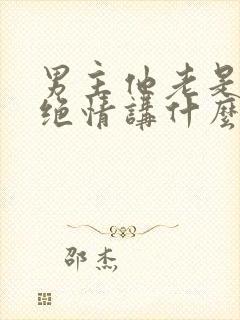 男主他老是
绝情講什麼
邵杰